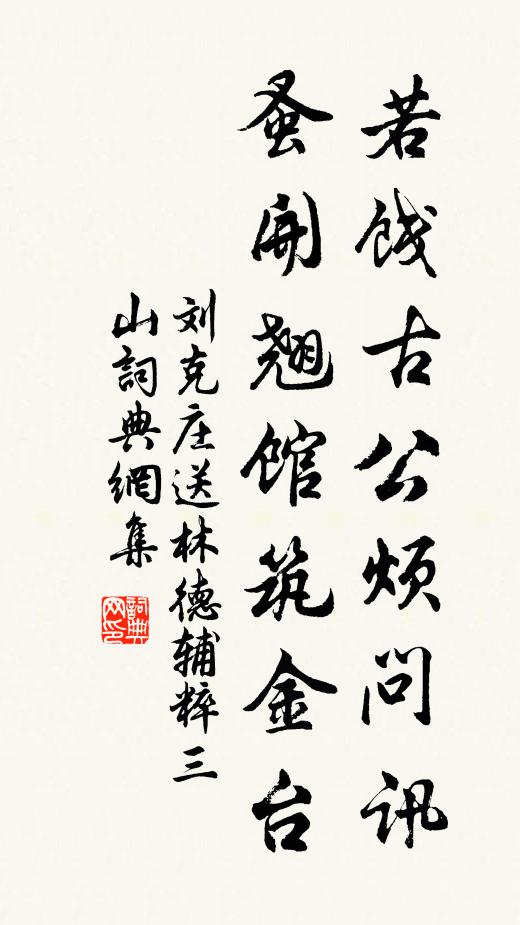 若饯古公烦问讯
蚤開翘馆筑金台
刘克庄送林德辅粹三
山詞典網集
詞典网印